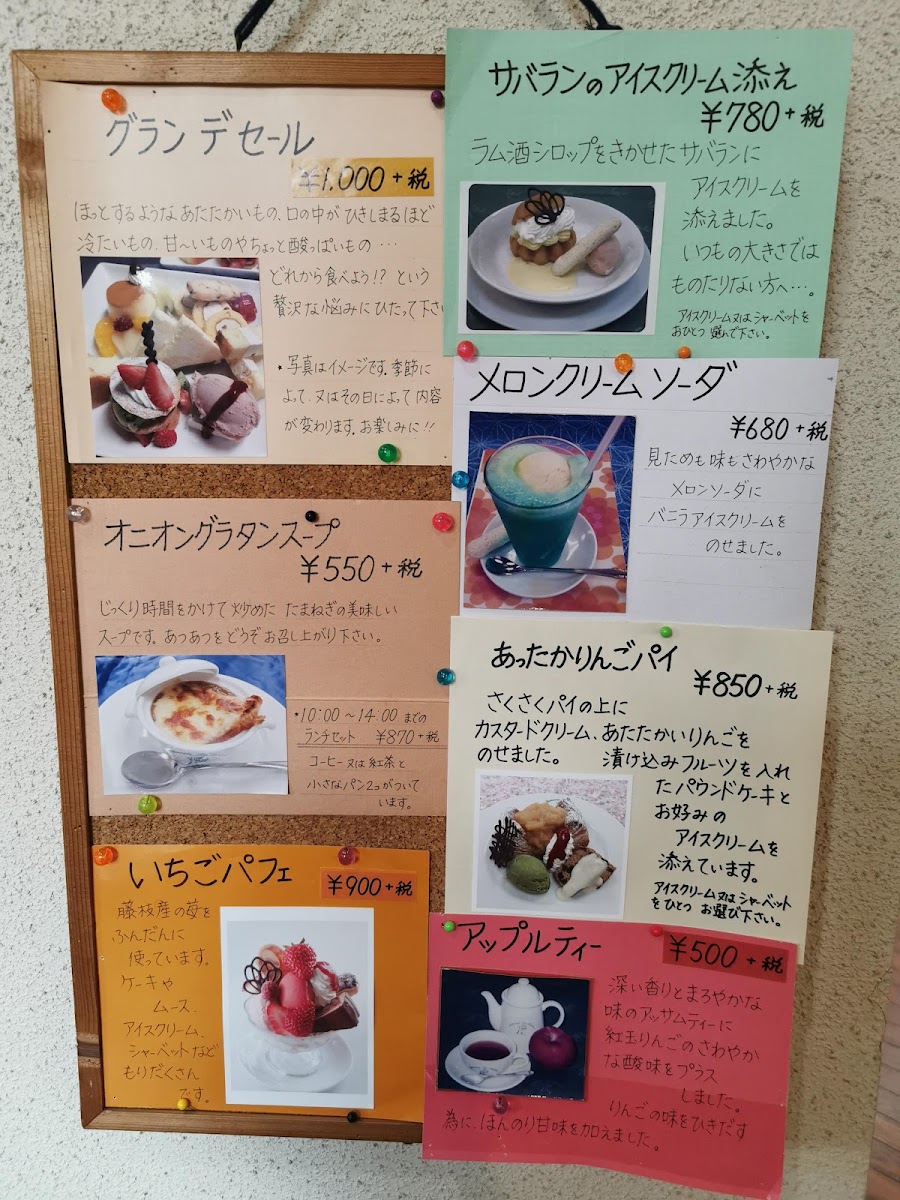 グラン デセール
¥1,000+税
ほっとするような あたたかいもの、口の中が ひきしまるほど
冷たいもの、甘〜いものや ちょっと酸っぱいもの …
どれから食べよう!? という
贅沢な悩みにひたって下さい
・写真はイメージです。季節に
よって、又はその日によって内容
が変わります。お楽しみに!!
サバランのアイスクリーム添え
¥780+税
ラム酒シロップをきかせた サバランに
アイスクリームを
添えました。
いつもの大きさでは
ものたりない方へ…。
アイスクリーム又はシャーベットを
おひとつ 選んで下さい。
メロンクリームソーダ
¥680+税
見ためも味もさわやかな
メロンソーダに
バニラアイスクリームを
のせました。
オニオングラタンスープ
¥550+税
じっくり時間をかけて炒めた たまねぎの美味しい
スープです。あつあつをどうぞお召し上がり下さい。
・10:00〜14:00 までの
ランチセット ¥870+税
コーヒー又は紅茶と
小さなパン2コがついて
います。
あったかりんごパイ
¥850+税
さくさくパイの上に
カスタードクリーム、あたたかいりんごを
のせました。 漬け込みフルーツを入れ
たパウンドケーキと
お好みの
アイスクリームを
添えています。
アイスクリーム又はシャーベット
をひとつ お選び下さい。
いちごパフェ
¥900+税
藤枝産の苺を
ふんだんに
使っています。
ケーキや
ムース、
アイスクリーム、
シャーベットなど
もりだくさん
です。
アップルティー
¥500+税
深い香りとまろやかな
味のアッサムティーに
紅玉りんごのさわやか
な酸味をプラス
しました。
りんごの味をひきだす
為に、ほんのり甘味を加えました。